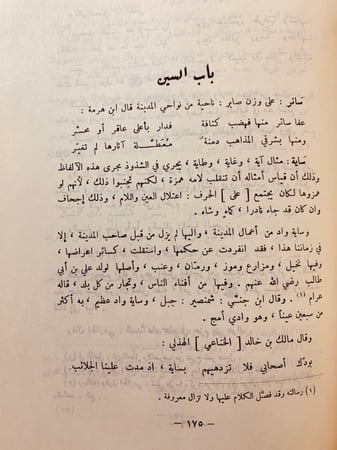 باب السين
سائر : على وزن صابر : ناحية من نواحي المدينة قال ابن هرمة :
عفا سائر منها فهضب كتافة فدار بأعلى عاقر أو محسّر
ومنها بشرقي المذاهب دمنة معطّلة آثارها لم تغيّر
ساية : مثال آية ، وغاية ، وطاية ، يجري في الشذوذ مجرى هذه الألفاظ
وذلك أن قياس أمثاله أن تنقلب لامه همزة ، لكنهم تجنبوا ذلك ، لأنهم لو
همزوها لكان يجتمع [ على ] الحرف : اعتلال العين واللام ، وذلك إجحاف
وان كان قد جاء نادرا ، كماء وشاء .
وساية واد من أعمال المدينة ، واليها لم يزل من قبل صاحب المدينة ، إلا
في زماننا هذا ، فقد انفردت عن حكمها ، واستقلت ، كسائر اعراضها ،
وفيها نخيل ، ومزارع وموز ، ورمّان ، وعنب ، وأصلها لولد علي بن أبي
طالب رضي الله عنهم . وفيها من أفناء الناس ، وتجار من كل بلد ، قاله
عرام (١) . وقال ابن جنّي : شمنصير : جبل ، وساية واد عظيم ، به أكثر
من سبعين عيناً ، وهو وادي أمج .
وقال مالك بن خالد [ الخناعي ] الهذلي :
بودّك أصحابي فلا تزدهيهم بساية ، اذ مدت علينا الجلائب
(١) رسالته وقد فصّل الكلام عليها ولا تزال معروفة .
— ١٧٥ —